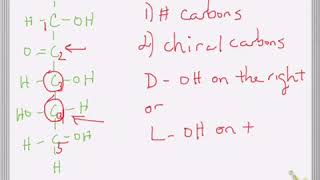 H - C - OH 1) # carbons
1
O = C 2 2) chiral carbons
H - C - OH D - OH on the right
3
HO - C - H or
4
H - C - OH L - OH on t
5
H